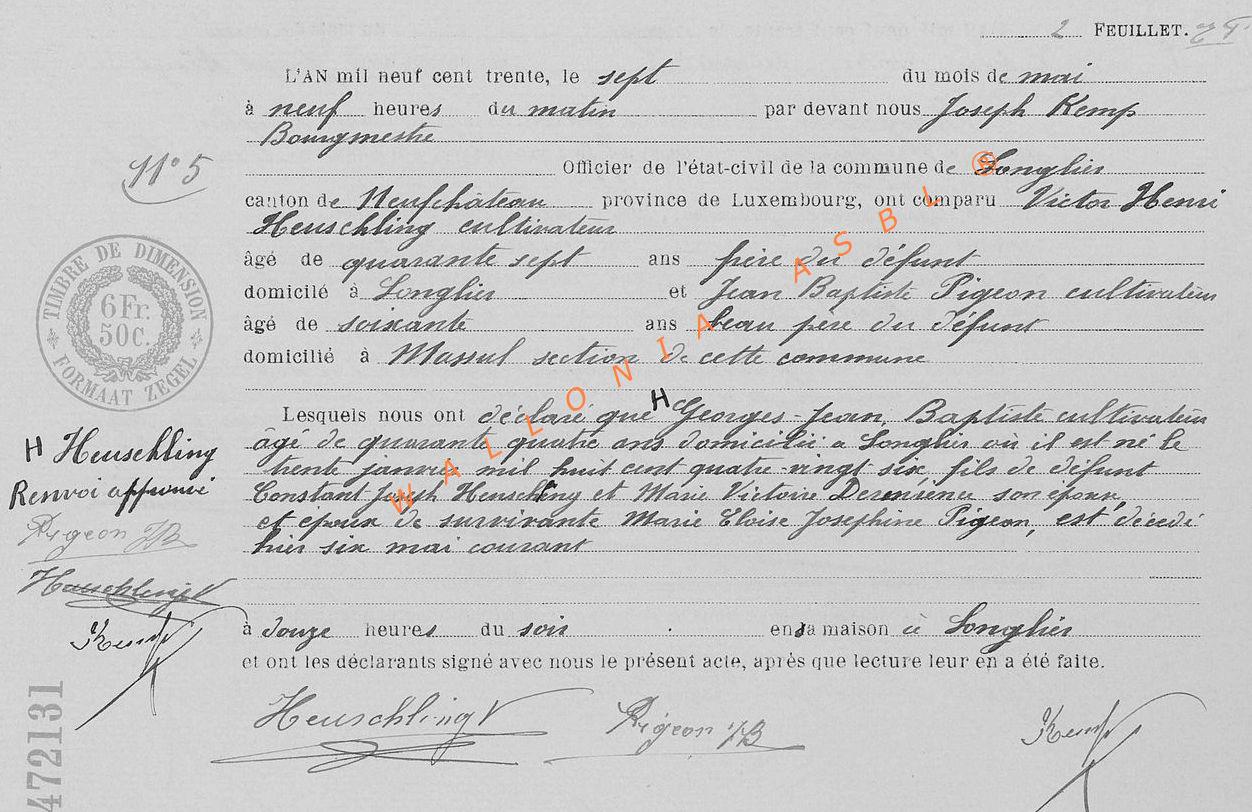 2 FEUILLET.
L'AN mil neuf cent trente, le sept du mois de mai
à neuf heures du matin par devant nous Joseph Kemp
Bourgmestre
N° 5
Officier de l'état-civil de la commune de Longlier
canton de Neufchâteau province de Luxembourg, ont comparu Victor Henri
Heuschling cultivateur
âgé de quarante sept ans frère du défunt
domicilié à Longlier et Jean Baptiste Pigeon cultivateur
âgé de soixante ans beau père du défunt
domicilié à Massul section de cette commune
Lesquels nous ont déclaré que H Georges-Jean, Baptiste cultivateur
âgé de quarante quatre ans domicilié a Longlier où il est né le
trente janvier mil huit cent quatre-vingt six, fils de défunt
Constant Joseph Heuschling et Marie Victoire son epoux,
et époux de survivante Marie Eloise Josephine Pigeon, est décédé
hier six mai courant
à douze heures du soir en sa maison à Longlier
et ont les déclarants signé avec nous le présent acte, après que lecture leur en a été faite.
Heuschling V Pigeon JB Kemp
TIMBRE DE DIMENSION
6 Fr.
50c.
FORMAAT ZEGEL
H Heuschling
Renvoi approuvé
Pigeon JB
Heuschling V
Kemp
472131
WALLONIA ASBL ®